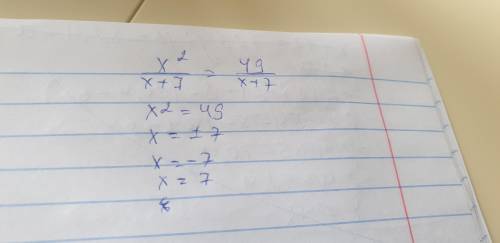 x² / x+7 = 49 / x+7
x² = 49
x = ±7
x = -7
x = 7